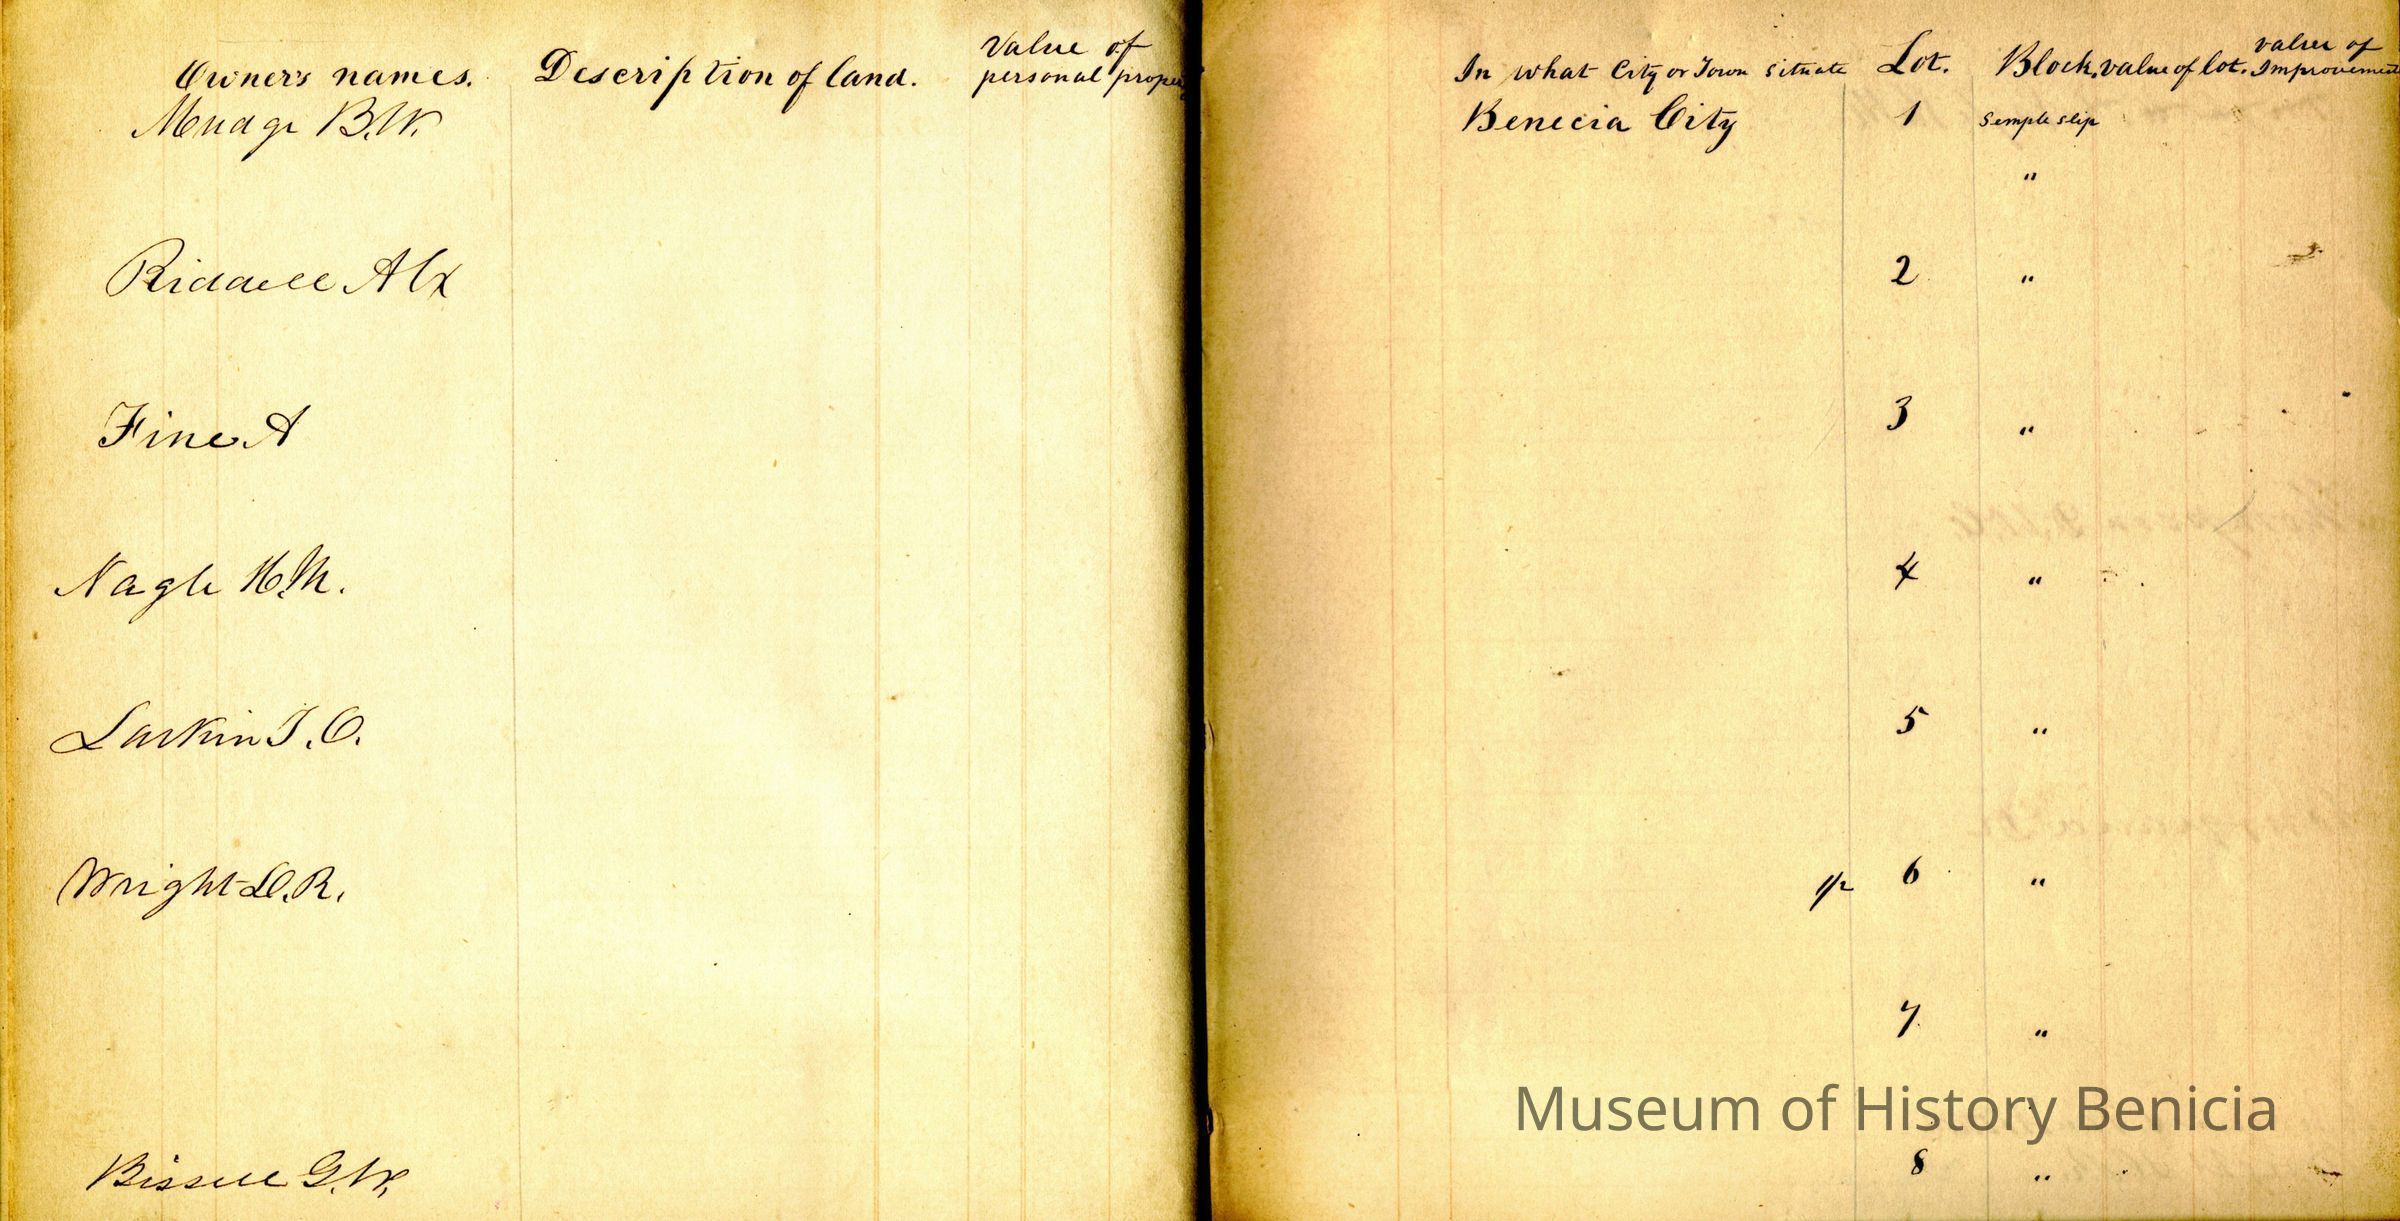 Owner's names. Description of land. Value of personal proper
In what City or Town situate Lot. Block. value of lot. value of Improvement
Mudge B.W. Benecia City 1 Semple slip
"
Riddell Alx 2 "
Fine A 3 "
Nagle H.M. 4 "
Larkin T.O. 5 "
Wright D.R. 1/2 6 "
7 "
Museum of History Benicia
Bissell G.W. 8 "